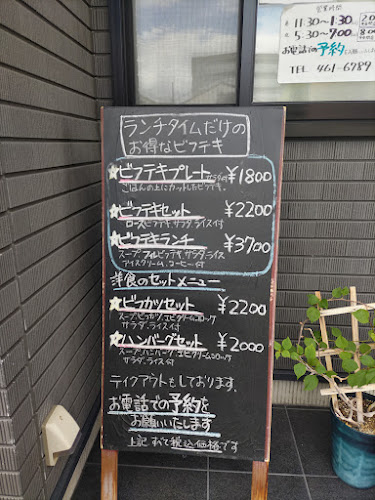 営業時間
11:30〜1:30
5:30〜7:00
お電話で予約
TEL 461-6789
ランチタイムだけの
お得なビフテキ
★ビフテキプレート サラダ付 ¥1800
ごはんの上にカットしたビフテキ。
★ビフテキセット ¥2200
ロースビフテキ、サラダ、ライス付
★ビフテキランチ ¥3700
スープ、フィレビフテキ、サラダ、ライス
アイスクリーム、コーヒー付
洋食のセットメニュー
★ビフカツセット ¥2200
スープ、ビフカツ、エビクリームコロッケ
サラダ、ライス付
★ハンバーグセット ¥2000
スープ、ハンバーグ、エビクリームコロッケ
サラダ、ライス付
テイクアウトもしております。
お電話での予約を
お願いいたします
上記すべて税込価格です